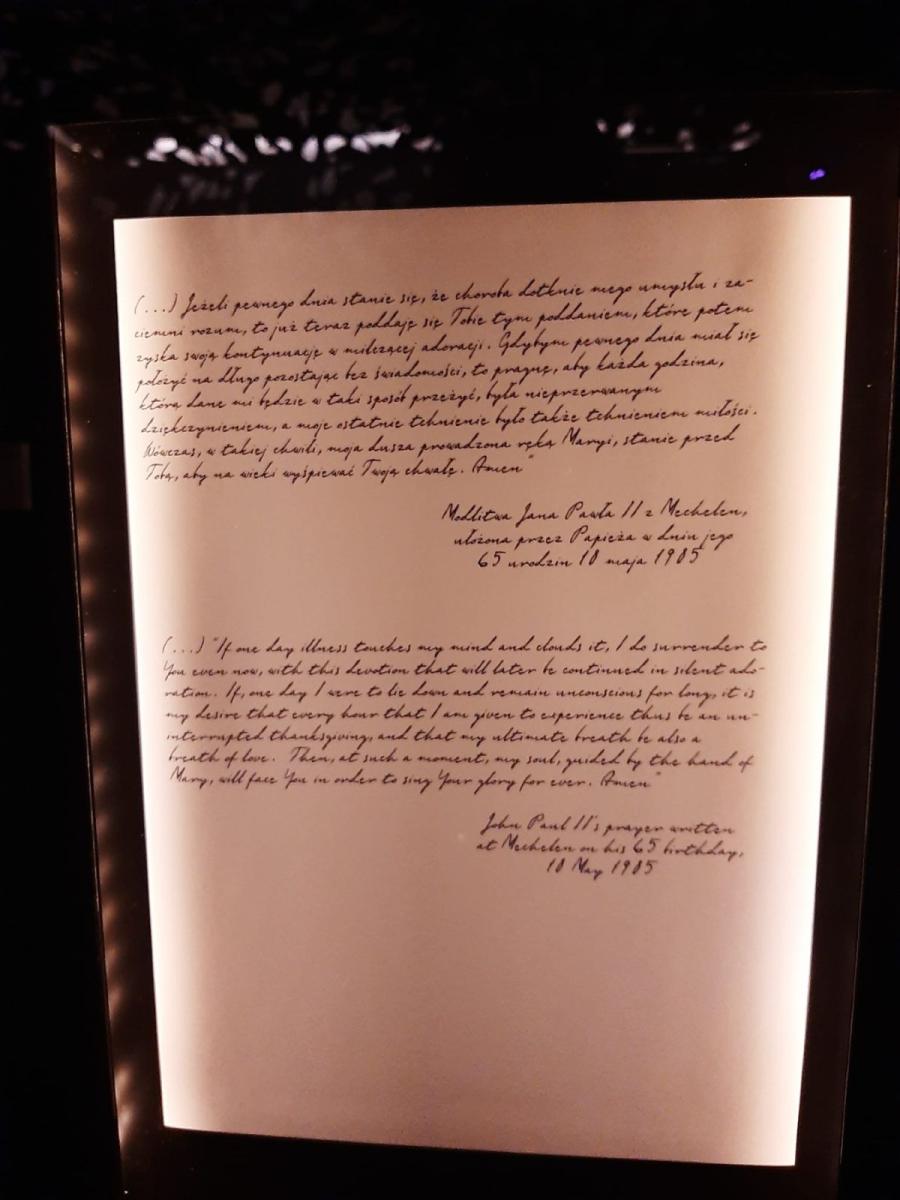 (...) Jeżeli pewnego dnia stanie się, że choroba dotknie mego umysłu i za-
ciemni rozum, to już teraz poddaję się Tobie tym poddaniem, które potem
zyska swoją kontynuację w milczącej adoracji. Gdybym pewnego dnia miał się
położyć na długo pozostając bez świadomości, to pragnę, aby każda godzina,
którą dane mi będzie w taki sposób przeżyć, była nieprzerwanym
dziękczynieniem, a moje ostatnie tchnienie było także tchnieniem miłości.
Wówczas, w takiej chwili, moja dusza prowadzona ręką Maryi, stanie przed
Tobą, aby na wieki wyśpiewać Twoją chwałę. Amen"
Modlitwa Jana Pawła II z Mechelen,
ułożona przez Papieża w dniu jego
65 urodzin 18 maja 1985
(...) "If one day illness touches my mind and clouds it, I do surrender to
You even now, with this devotion that will later be continued in silent ado-
ration. If, one day I were to lie down and remain unconscious for long, it is
my desire that every hour that I am given to experience thus be an un-
interrupted thanksgiving, and that my ultimate breath be also a
breath of love. Then, at such a moment, my soul, guided by the hand of
Mary, will face You in order to sing Your glory for ever. Amen"
John Paul II's prayer written
at Mechelen on his 65 birthday,
18 May 1985